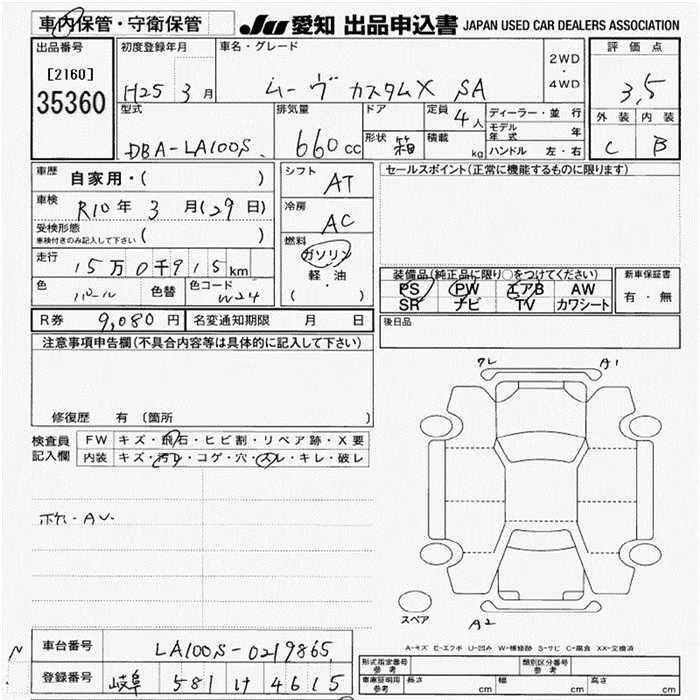 車内保管・守衛保管 JU 愛知 出品申込書 JAPAN USED CAR DEALERS ASSOCIATION
出品番号 [2160] 35360
初度登録年月 H25 3月
車名・グレード ムーヴ カスタムX SA
2WD ・ 4WD
評価点 3,5
外装 C 内装 B
型式 DBA-LA100S
排気量 660cc
ドア
形状 箱
定員 4人
積載 kg
ディーラー・並行
モデル年式 年
ハンドル 左・右
車歴 自家用・( )
車検 R10年 3月(29日)
受検形態 ( )
車検付きのみ記入して下さい
走行 15万0千915km
色 パール 色替 色コード W24
シフト AT
冷房 AC
燃料 ガソリン
軽・油
( ・ )
セールスポイント(正常に機能するものに限ります)
装備品(純正品に限り○をつけてください)
PS PW エアB AW
SR ナビ TV カワシート
新車保証書
有・無
後日品
R券 9,080円 名変通知期限 月 日
注意事項申告欄(不具合内容等は具体的に記入して下さい)
修復歴 有 〔箇所 〕
検査員記入欄
FW キズ・飛石・ヒビ割・リペア跡・X要
内装 キズ・汚レ・コゲ・穴・スレ・キレ・破レ
ホル・AV.
クレ A1
スペア
A2
A-キズ E-エクボ U-凹み W-補修跡 S-サビ C-腐食 XX-交換済
N
車台番号 LA100S-0219865
登録番号 岐阜 581 け 4615
型式指定番号 参考 類別区分番号 参考
車庫証明用 参考 長さ cm 幅 cm 高さ cm